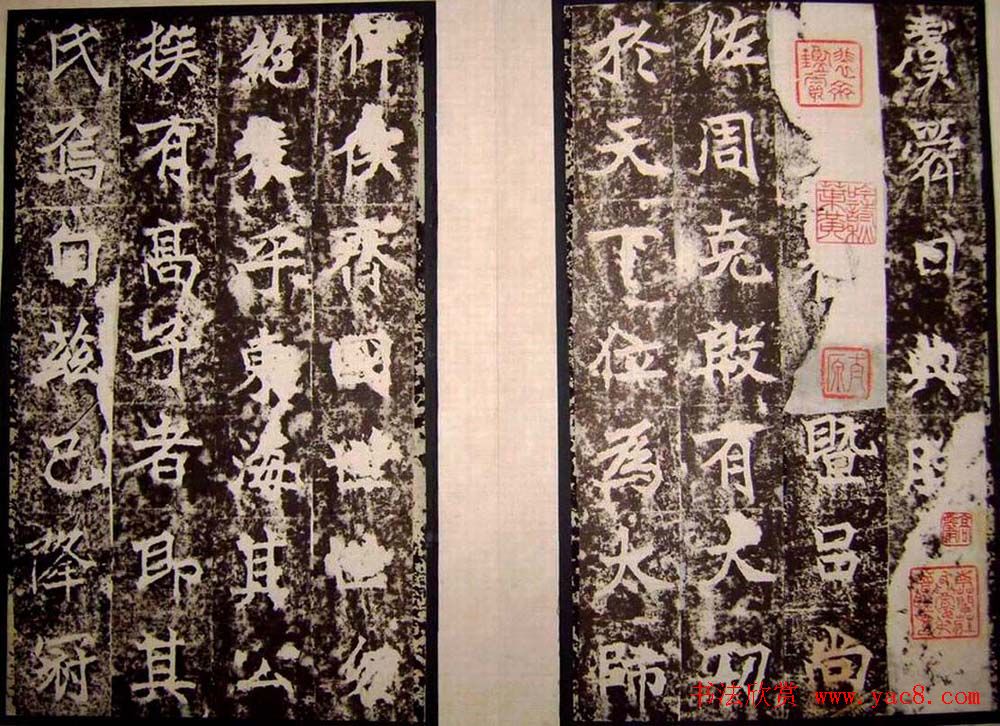 虞舜曰典朕
暨呂尚
佐周克殷有大功
於天下位為太師
俾侯齊國世世勿
絕表乎東海其公
族有高子者即其
氏焉自茲已降冠
书法欣赏 www.yac8.com